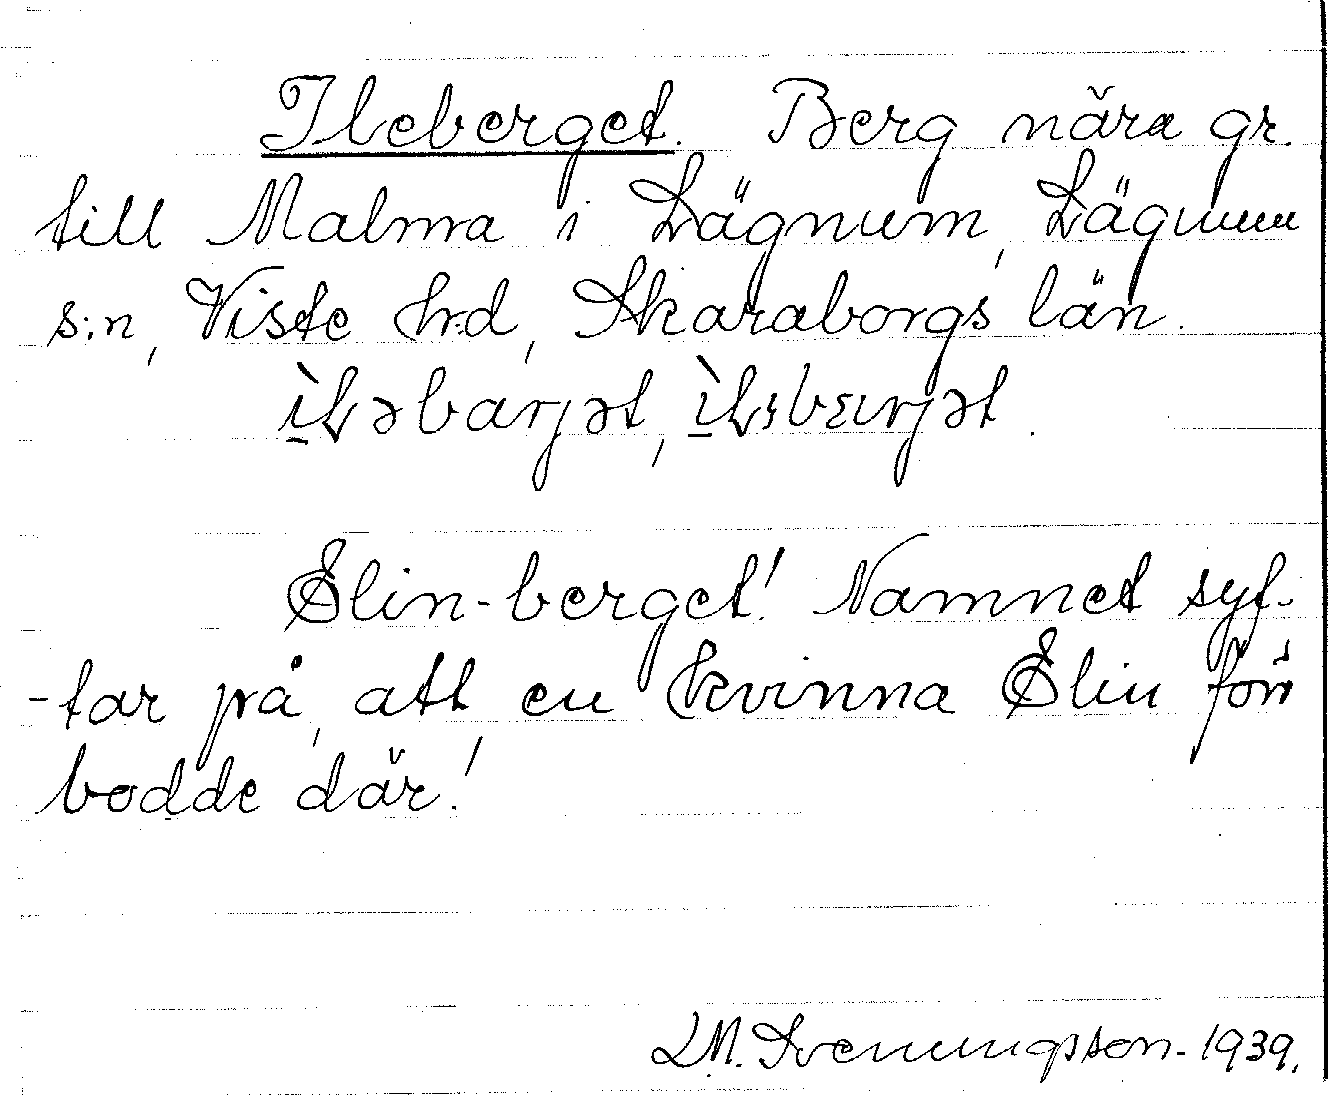 Ileberget. Berg nära gr.
till Malma i Längnum, Längnum
s:n, Viste hrd, Skaraborgs län.
Elin-berget! Namnet syf-
-tar på, att en kvinna Elin förr
bodde där!
L.M. Svenungsson - 1939.